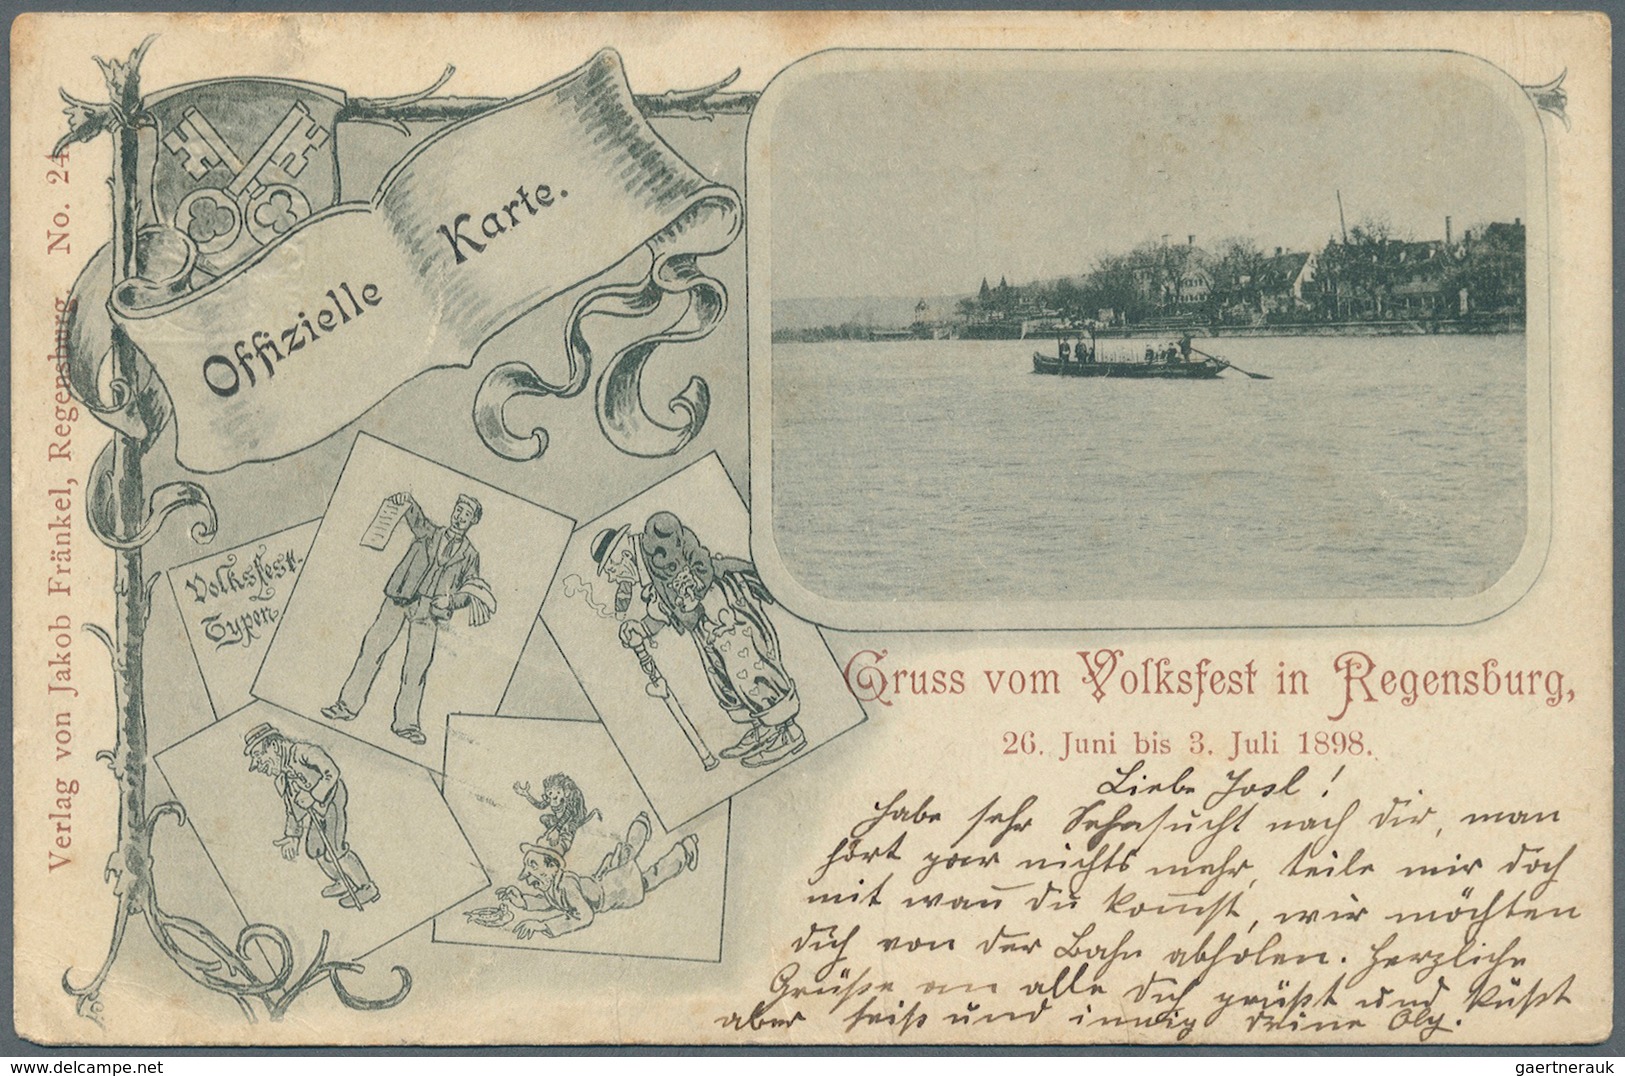 Verlag von Jakob Fränkel, Regensburg. No. 24
Offizielle Karte.
Volksfest-
Typen
Gruss vom Volksfest in Regensburg,
26. Juni bis 3. Juli 1898.
Liebe Josl!
habe sehr Sehnsucht nach dir, man
hört gar nichts mehr, teile mir doch
mit wann du kommst, wir möchten
dich von der Bahn abholen. Herzliche
Grüße an alle dich grüßt und küßt
aber heiß und innig deine Olg.
© oldthing.com
gaertnerauk